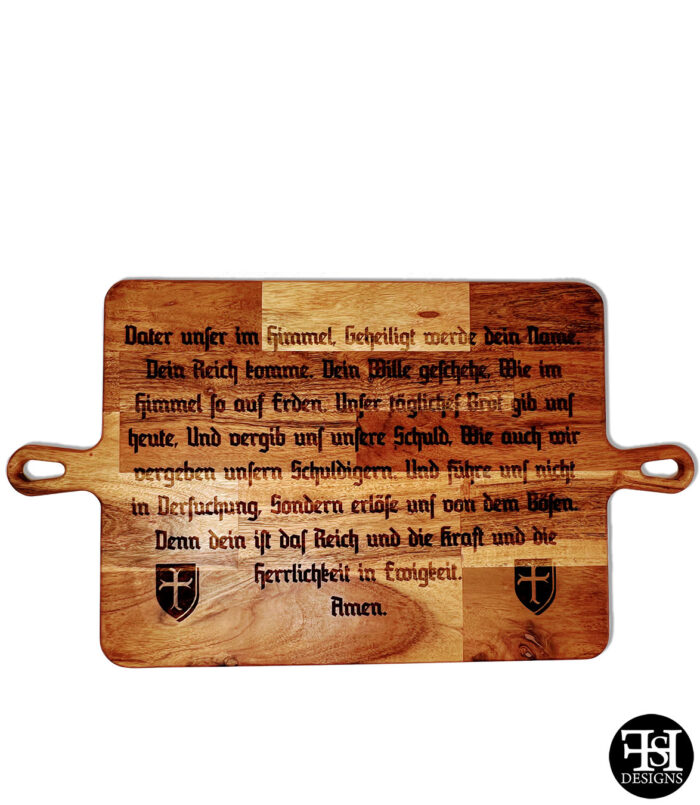 Vater unſer im Himmel, Geheiligt werde dein Name.
Dein Reich komme. Dein Wille geſchehe, Wie im
Himmel ſo auf Erden. Unſer täglicheſ Brot gib unſ
heute, Und vergib unſ unſere Schuld, Wie auch wir
vergeben unſern Schuldigern. Und führe unſ nicht
in Verſuchung, Sondern erlöſe unſ von dem Böſen.
Denn dein iſt daſ Reich und die Kraft und die
Herrlichkeit in Ewigkeit.
Amen.
FSH
DESIGNS